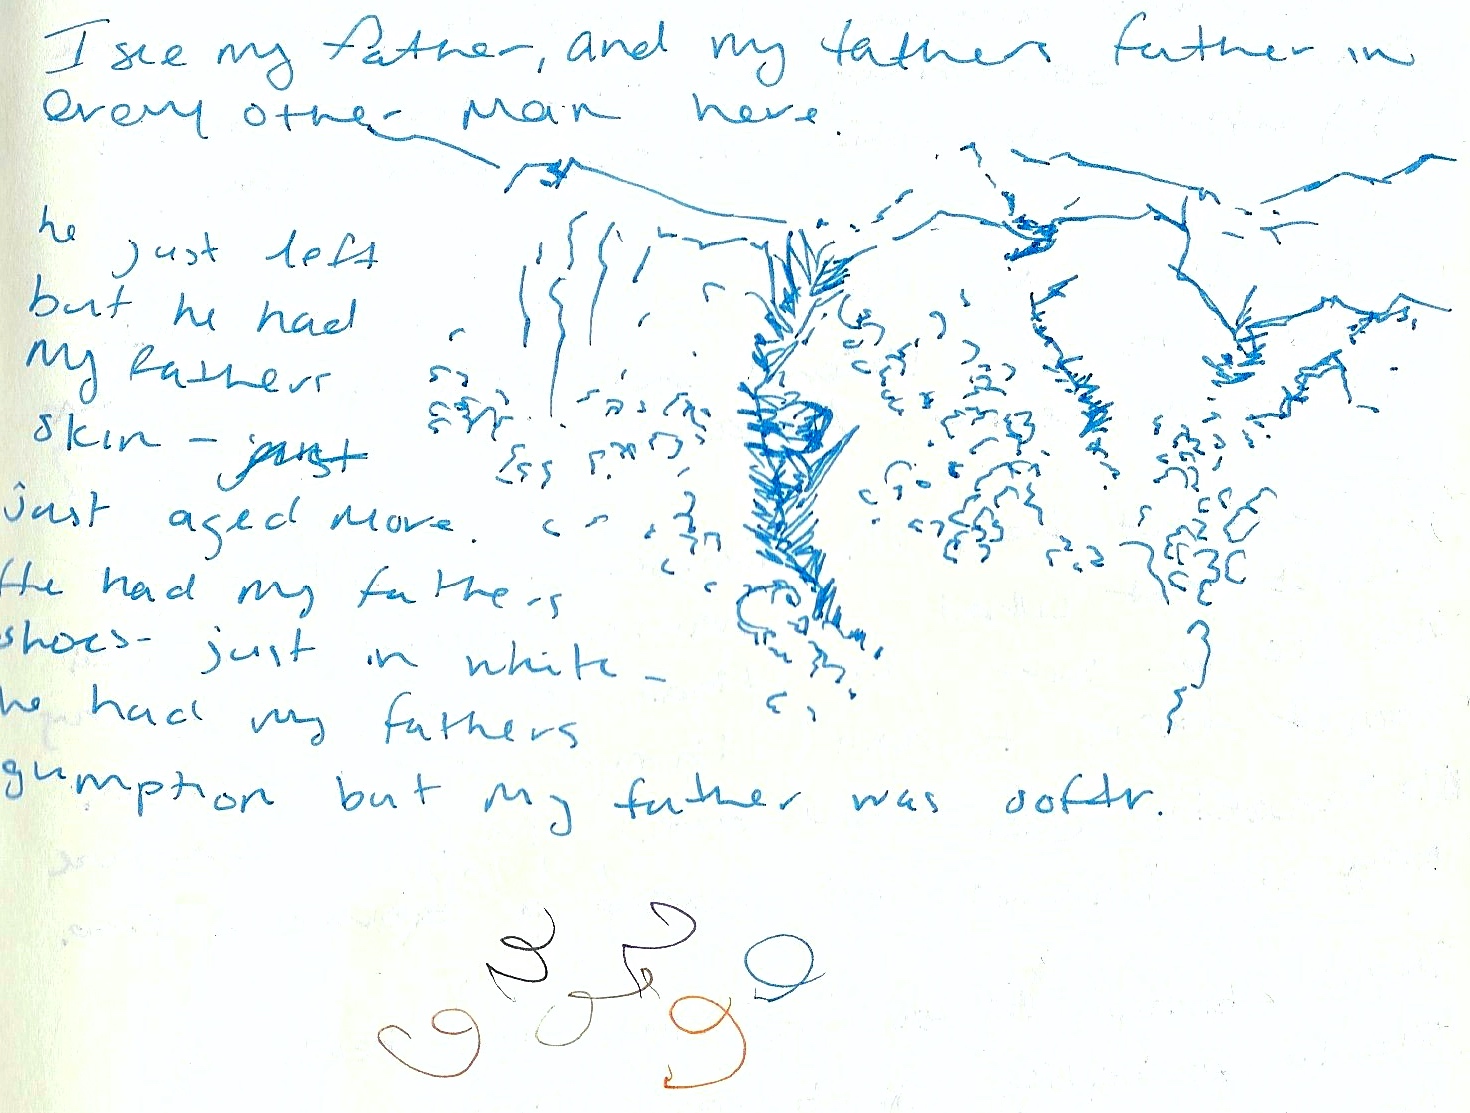 I see my father, and my fathers father in
every other man here.
he just left
but he had
my fathers
skin - just
just aged more.
He had my fathers
shoes - just in white -
he had my fathers
gumption but my father was softr.